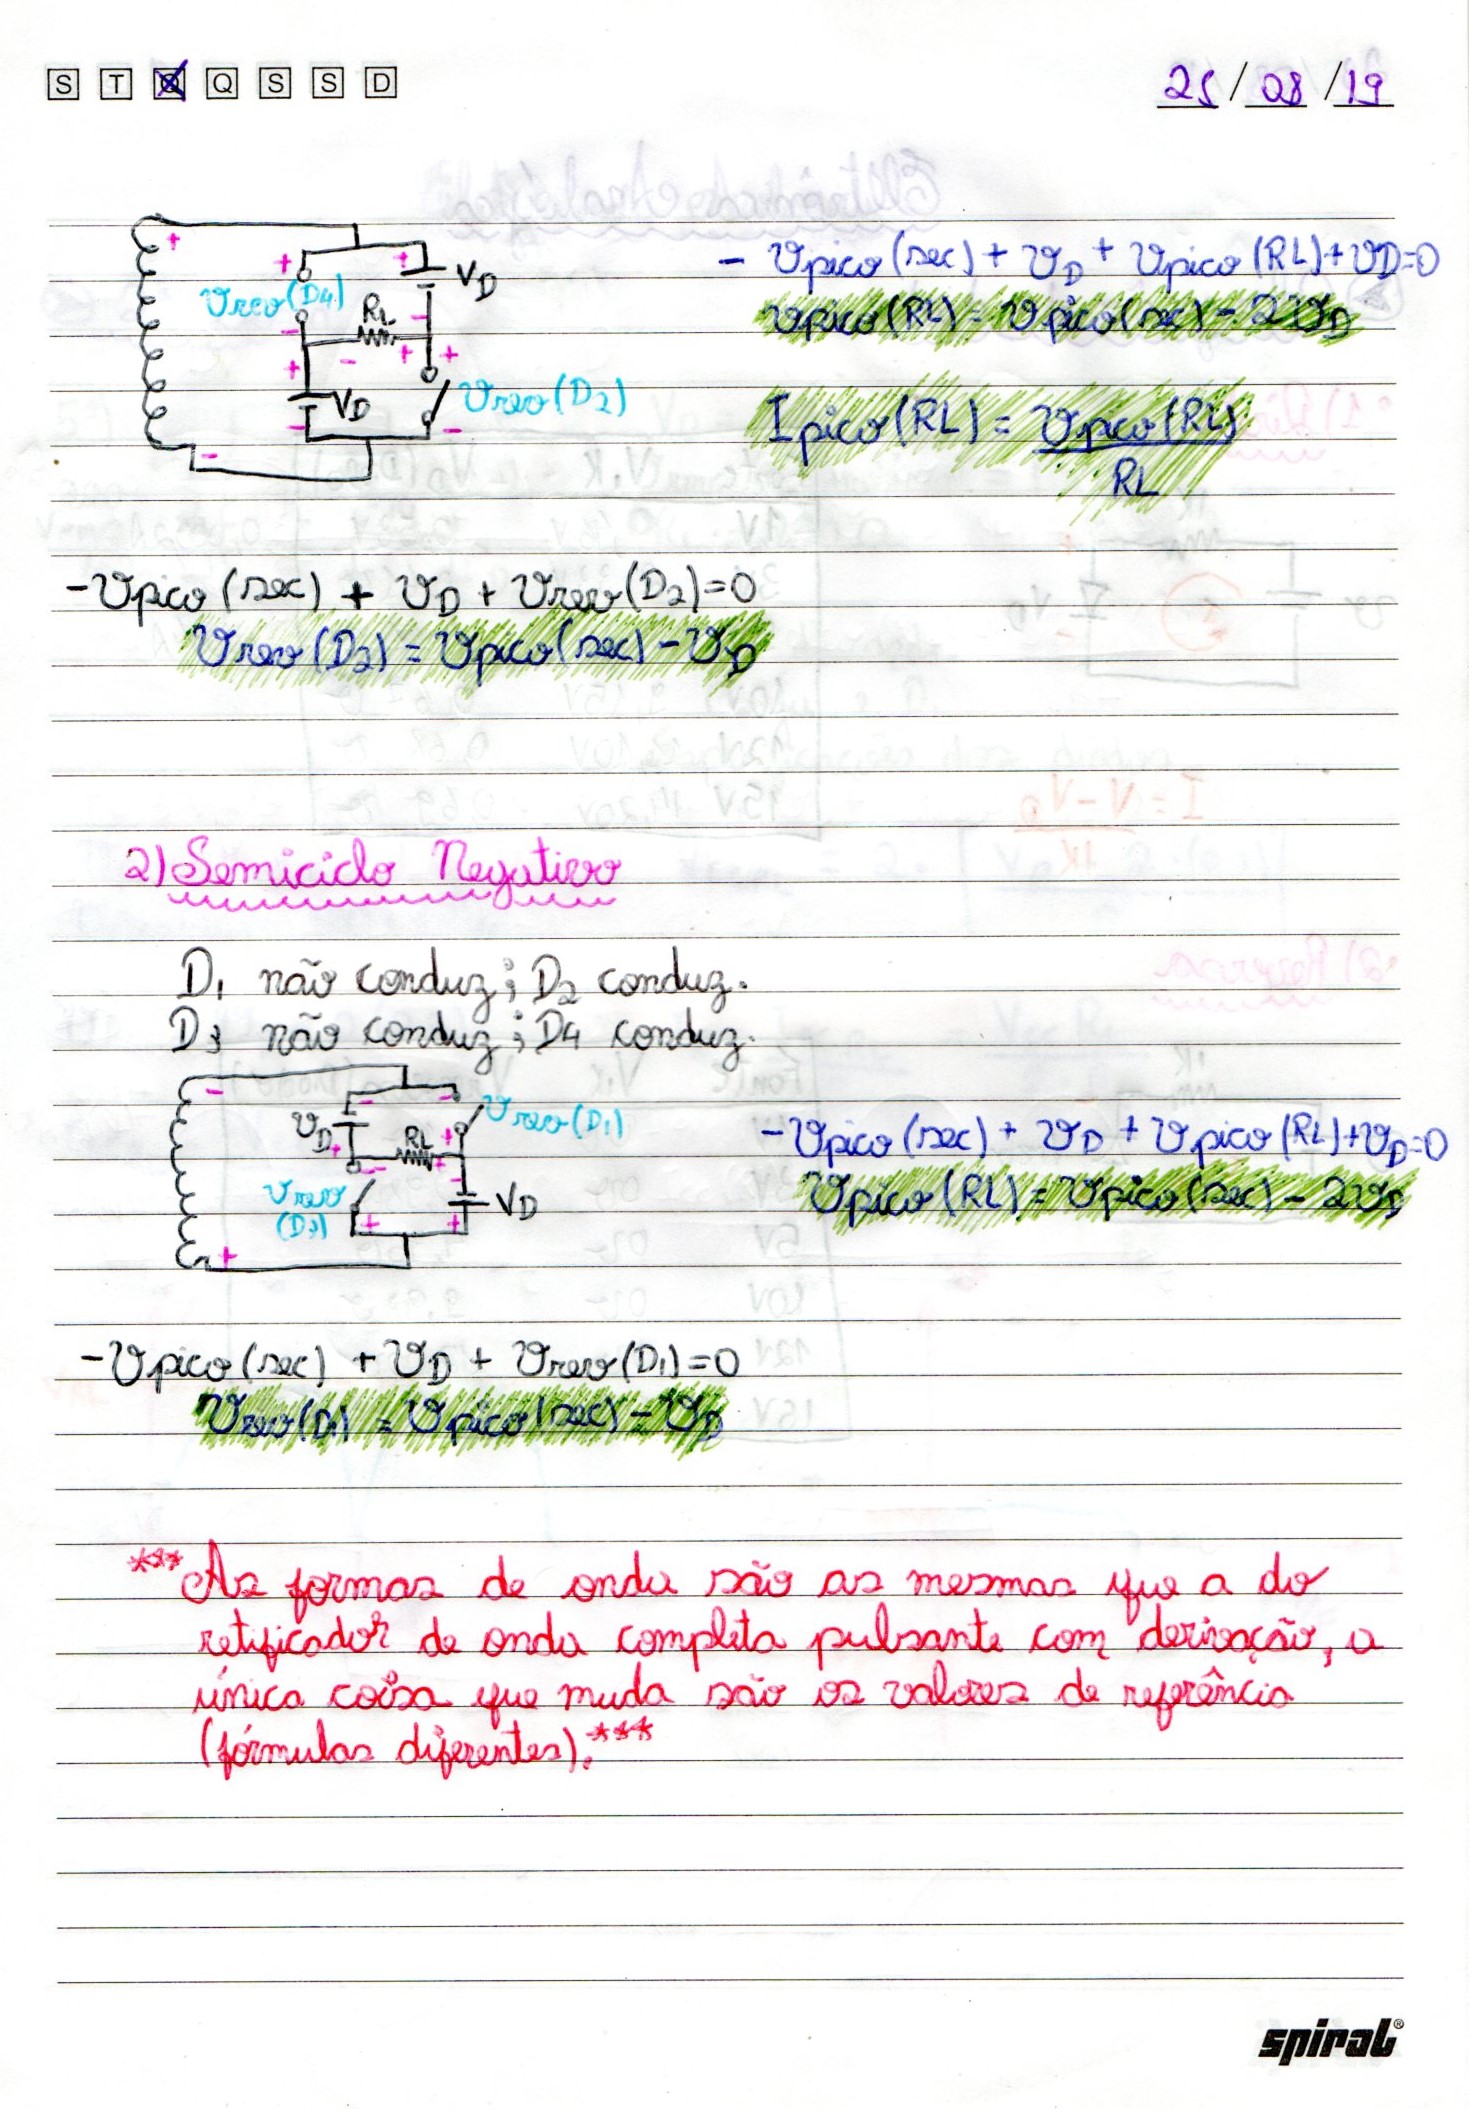 S T Q Q S S D
21/08/19
+ + + VD
Vrev(D4) RL
- - + - +
+ VD Vrev(D2)
- - -
- Vpico(sec) + VD + Vpico(RL) + VD=0
Vpico(RL) = Vpico(sec) - 2VD
Ipico(RL) = Vpico(RL)
RL
-Vpico(sec) + VD + Vrev(D2)=0
Vrev(D2) = Vpico(sec) - VD
2) Semiciclo Negativo
D1 não conduz; D2 conduz.
D3 não conduz; D4 conduz.
- - - Vrev(D1)
VD + RL +
- +
Vrev - VD
(D3) + +
+
-Vpico(sec) + VD + Vpico(RL)+VD=0
Vpico(RL) = Vpico(sec) - 2VD
-Vpico(sec) + VD + Vrev(D1)=0
Vrev(D1) = Vpico(sec) - VD
***As formas de onda são as mesmas que a do
retificador de onda completa pulsante com derivação, a
única coisa que muda são os valores de referência
(fórmulas diferentes).***
spiral®